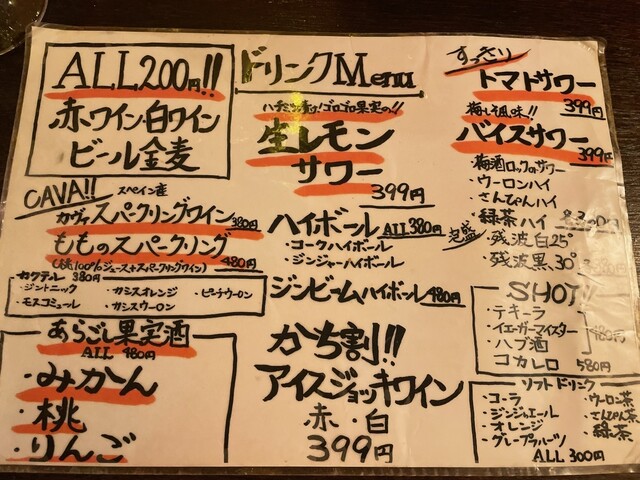 ALL200円!!
赤ワイン・白ワイン
ビール金麦
ドリンクMenu
ハチミツ漬け!ゴロゴロ果実の!!
生レモン
サワー
399円
すっきり
トマトサワー
399円
梅しそ風味!!
バイスサワー
399円
・梅酒ロックorサワー
・ウーロンハイ
・さんぴんハイ
・緑茶ハイ
・残波白25°
・残波黒30°
完盛
CAVA!!
スペイン産
カヴァスパークリングワイン380円
もものスパークリング
480円
カクテル 380円
・ジントニック
・カシスオレンジ
・ピーチウーロン
・モスコミュール
・カシスウーロン
ハイボールALL380円
・コークハイボール
・ジンジャーハイボール
ジンビームハイボール480円
あらごし果実酒
ALL 480円
・みかん
・桃
・りんご
かち割!!
アイスジョッキワイン
赤・白
399円
SHOT!!
・テキーラ
・イエーガーマイスター
・ハブ酒
480円
・コカレロ 580円
ソフトドリンク
・コーラ
・ウーロン茶
・ジンジャエール
・さんぴん茶
・オレンジ
・緑茶
・グレープフルーツ
ALL 300円